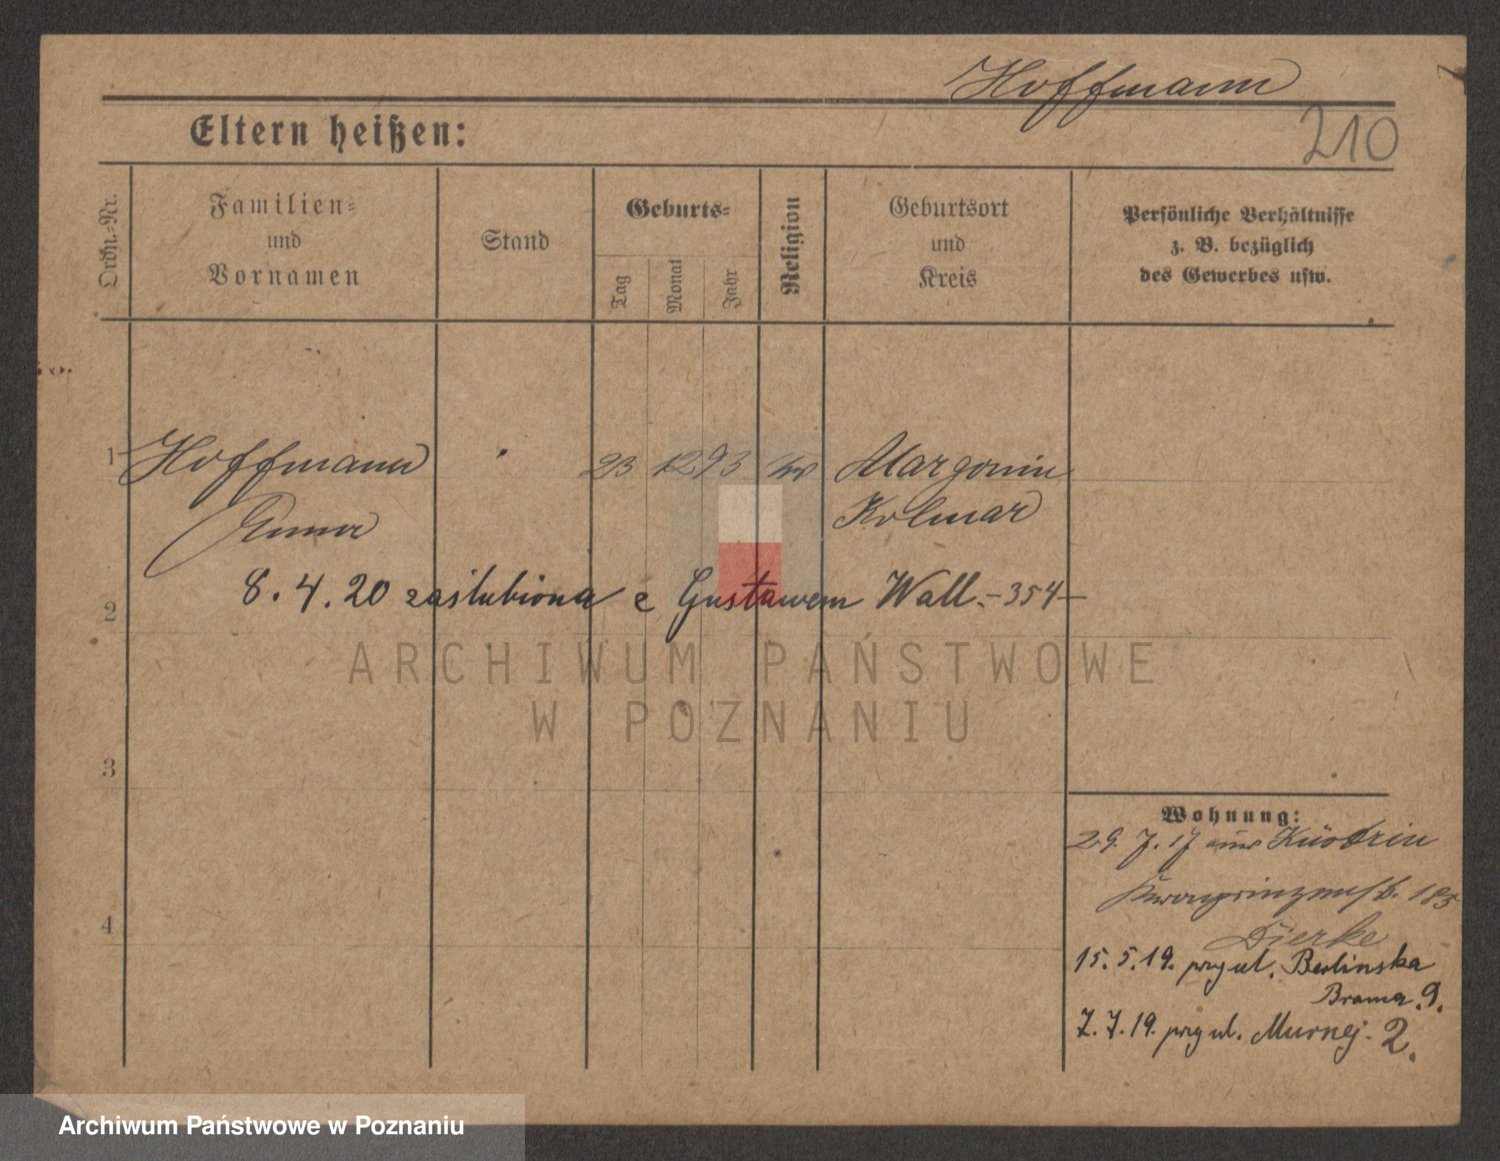 Hoffmann
210
Eltern heißen:
Ordn.-Nr.
Familien-
und
Vornamen
Stand
Geburts-
Tag
Monat
Jahr
Religion
Geburtsort
und
Kreis
Persönliche Verhältnisse
z. B. bezüglich
des Gewerbes usw.
1 Hoffmann 23 12 93 ev Margonin
Kolmar
8. 4. 20 zaślubiona z Gustawem Wall.-354-
2
ARCHIWUM PAŃSTWOWE
W POZNANIU
3
Wohnung:
29. 7. 17 aus Küstrin
Kronprinzenstr. 185
Dierke
4
15. 5. 19. przy ul. Berlinska
Brama 9.
7. 7. 19. przy ul. Murnej. 2.
Archiwum Państwowe w Poznaniu